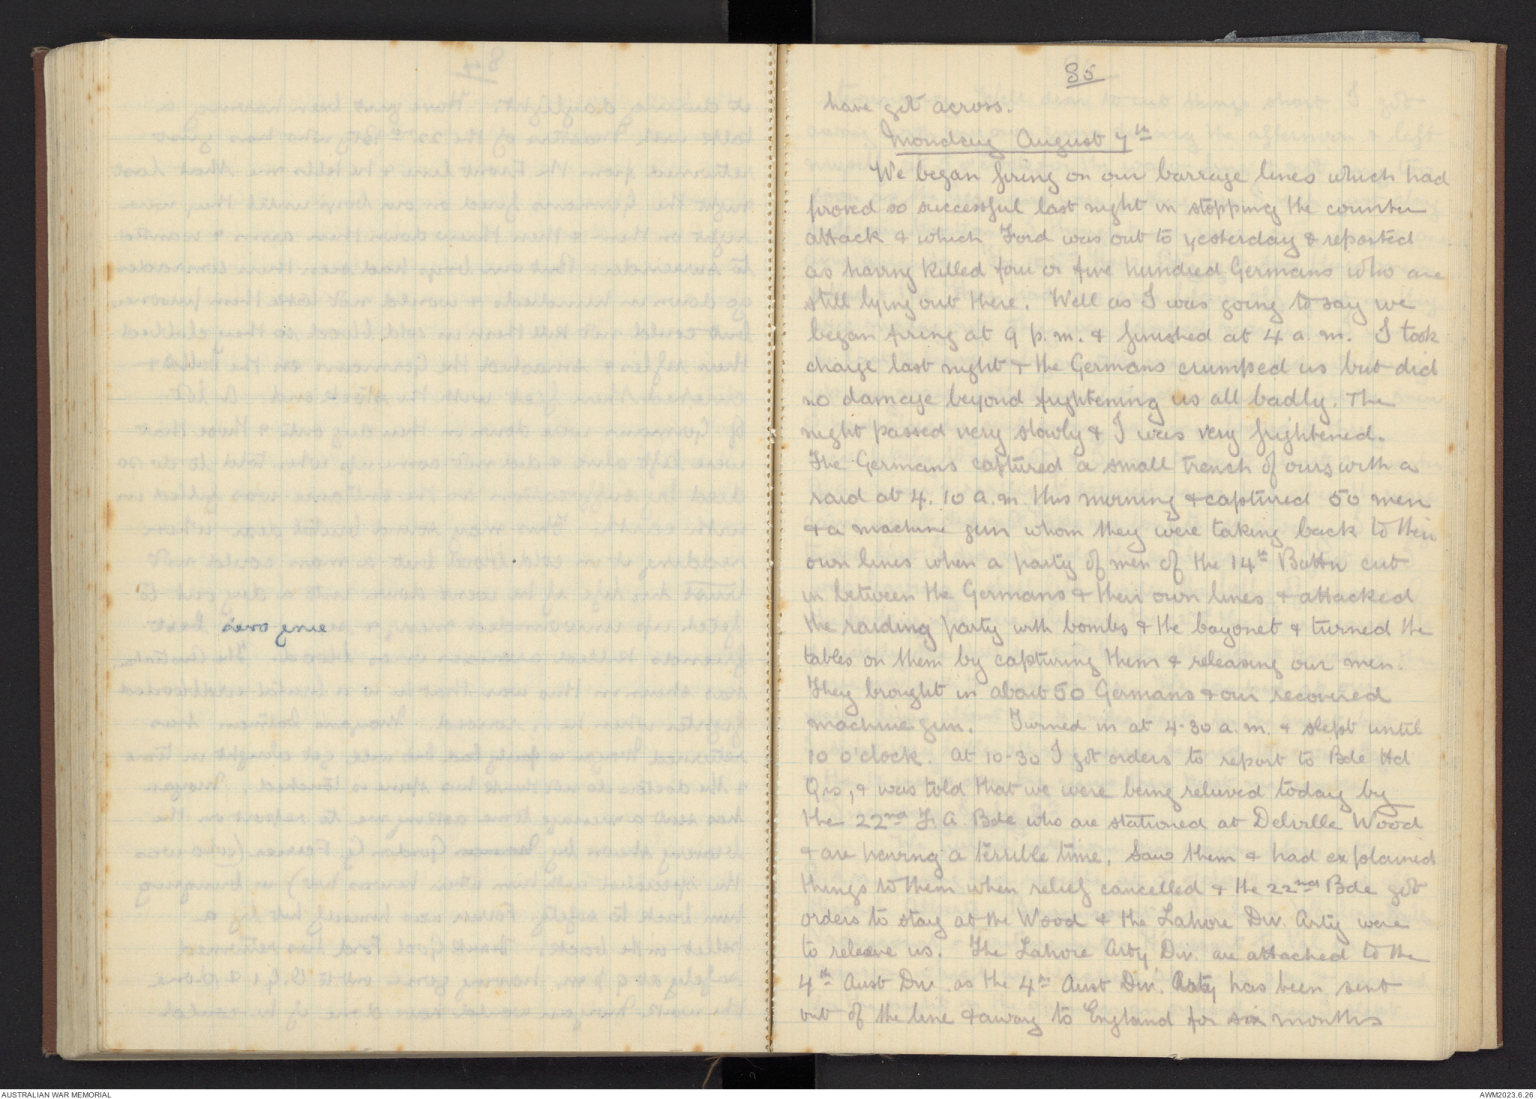 85
have got across.
Monday August 7th
We began firing on our barrage lines which had
proved so successful last night in stopping the counter
attack & which Ford was out to yesterday & reported
as having killed four or five hundred Germans who are
still lying out there. Well as I was going to say we
began firing at 9 p.m. & finished at 4 a.m. I took
charge last night & the Germans crumped us but did
no damage beyond frightening us all badly. The
night passed very slowly & I was very frightened.
The Germans captured a small trench of ours with a
raid at 4.10 a.m. this morning & captured 50 men
& a machine gun whom they were taking back to their
own lines when a party of men of the 14th Battn cut
in between the Germans & their own lines & attacked
the raiding party with bombs & the bayonet & turned the
tables on them by capturing them & releasing our men.
They brought in about 50 Germans & our recovered
machine gun. Turned in at 4-30 a.m. & slept until
10 o'clock. At 10-30 I got orders to report to Bde Hd
Qrs, & was told that we were being relieved today by
the 22nd F.A. Bde who are stationed at Delville Wood
& are having a terrible time. Saw them & had explained
things to them when relief cancelled & the 22nd Bde got
orders to stay at the Wood & the Lahore Div. Arty were
to releave us. The Lahore Arty Div. are attached to the
4th Aust Div. as the 4th Aust Div. Arty has been sent
out of the line & away to England for six months
AUSTRALIAN WAR MEMORIAL
AWM2023.6.26